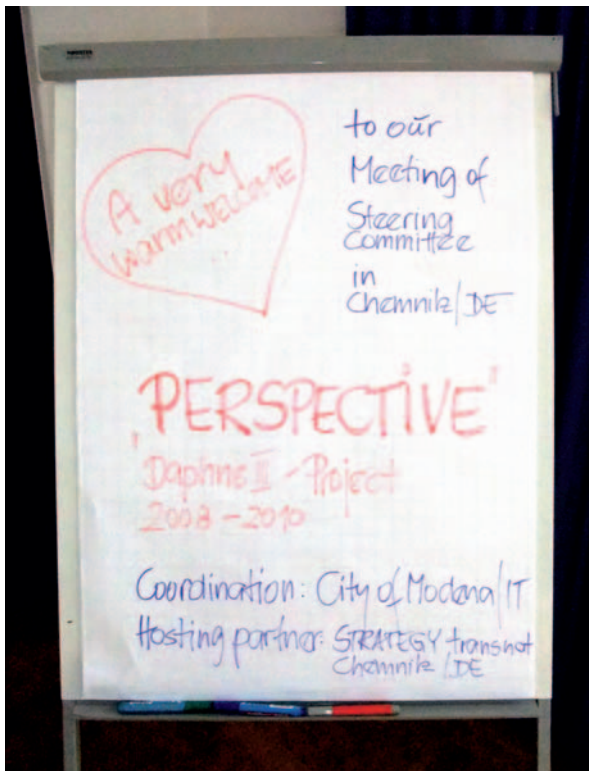 A very
warm WELCOME
to our
Meeting of
Steering
Committee
in
Chemnitz/DE
"PERSPECTIVE"
Daphne III - Project
2008 - 2010
Coordination: City of Modena/IT
Hosting partner: STRATEGY transnat
Chemnitz/DE